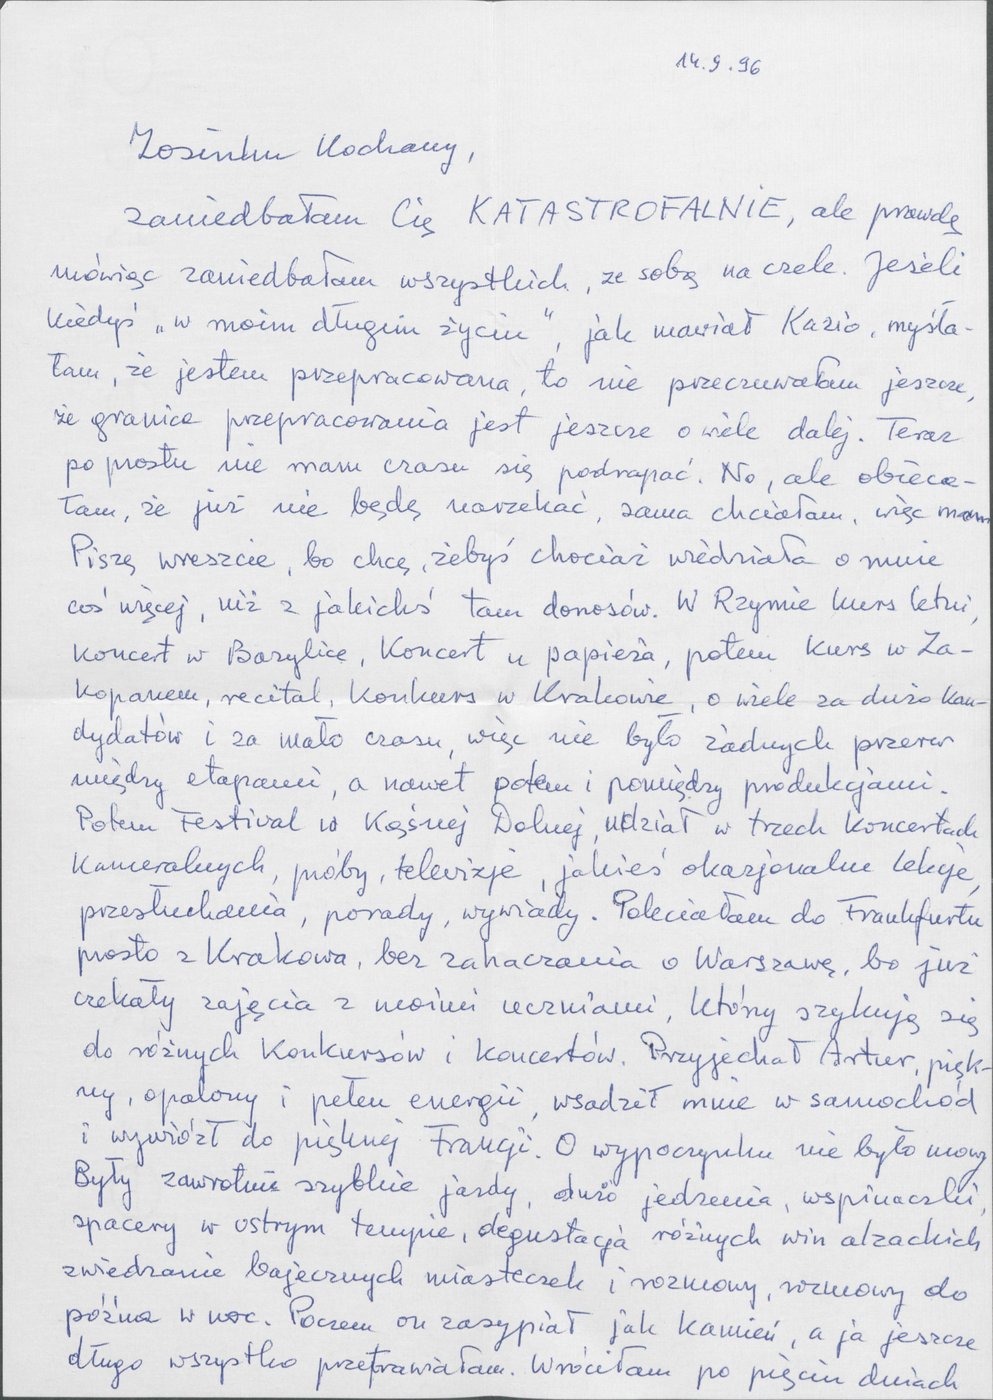 14.9.96
Zosieńku Kochany,
zaniedbałam Cię KATASTROFALNIE, ale prawdę
mówiąc zaniedbałam wszystkich, ze sobą na czele. Jeśeli
kiedyś „w moim długim życiu", jak mawiał Kazio, myśla-
łam, że jestem przepracowana, to nie przeczuwałam jeszcze,
że granica przepracowania jest jeszcze o wiele dalej. Teraz
po prostu nie mam czasu się podrapać. No, ale obieca-
łam, że już nie będę narzekać, sama chciałam, więc mam
Piszę wreszcie, bo chcę, żebyś chociaż wiedziała o mnie
coś więcej, niż z jakichś tam donosów. W Rzymie kurs letni,
koncert w Bazylice, Koncert u papieża, potem kurs w Za-
kopanem, recital, Konkurs w Krakowie, o wiele za dużo kan-
dydatów i za mało czasu, więc nie było żadnych przerw
między etapami, a nawet potem i pomiędzy produkcjami.
Potem Festival w Kąśnej Dolnej, udział w trzech koncertach
kameralnych, próby, telewizje, jakieś okazjonalne lekcje,
przesłuchania, porady, wywiady. Poleciałam do Frankfurtu
prosto z Krakowa, bez zahaczania o Warszawę, bo już
czekały zajęcia z moimi uczniami, którzy szykują się
do różnych Konkursów i koncertów. Przyjechał Artur, pięk-
ny, opalony i pełen energii, wsadził mnie w samochód
i wywiózł do pięknej Francji. O wypoczynku nie było mowy
Były zawrotnie szybkie jazdy, dużo jedzenia, wspinaczki,
spacery w ostrym tempie, degustacja różnych win alzackich
zwiedzanie bajecznych miasteczek i rozmowy, rozmowy do
późna w noc. Poczem on zasypiał jak kamień, a ja jeszcze
długo wszystko przetrawiałam. Wróciłam po pięciu dniach